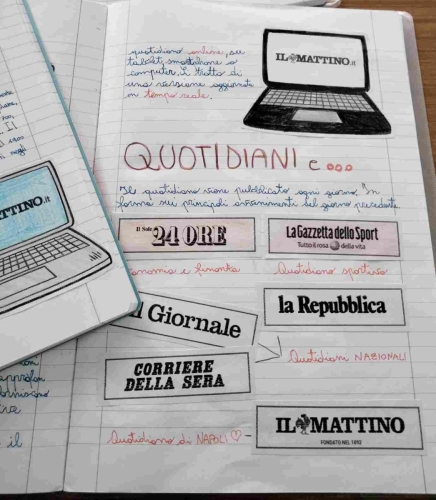 quotidiano online, su
tablet, smartphone o
computer. Si tratta di
una versione aggiornata
in tempo reale.
IL MATTINO.it
QUOTIDIANI e...
Il quotidiano viene pubblicato ogni giorno. In
forma sui principali avvenimenti del giorno precedente
Il Sole
24 ORE
La Gazzetta dello Sport
Tutto il rosa della vita
economia e finanza
Quotidiano sportivo
il Giornale
la Repubblica
Quotidiani NAZIONALI
CORRIERE
DELLA SERA
Quotidiano di NAPOLI ♡ -
IL MATTINO
FONDATO NEL 1892
ATTINO.it